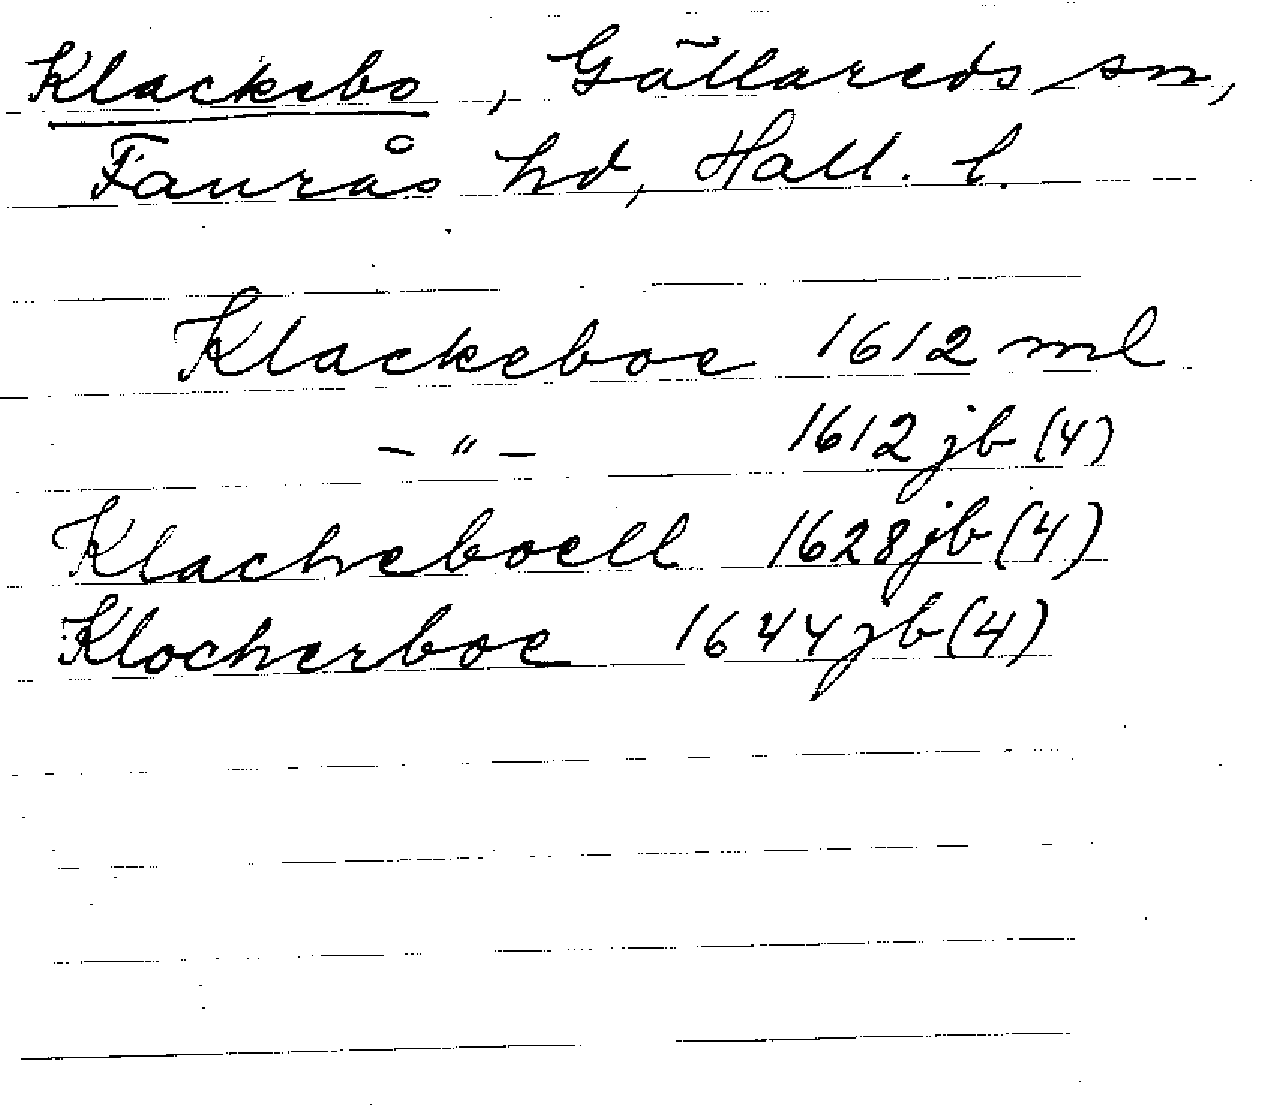 Klackebo, Gällareds sn,
Faurås hd, Hall. l.
Klackeboe 1612 ml
- " - 1612 jb (4)
Klacheboell 1628 jb (4)
Klocherboe 1644 jb (4)